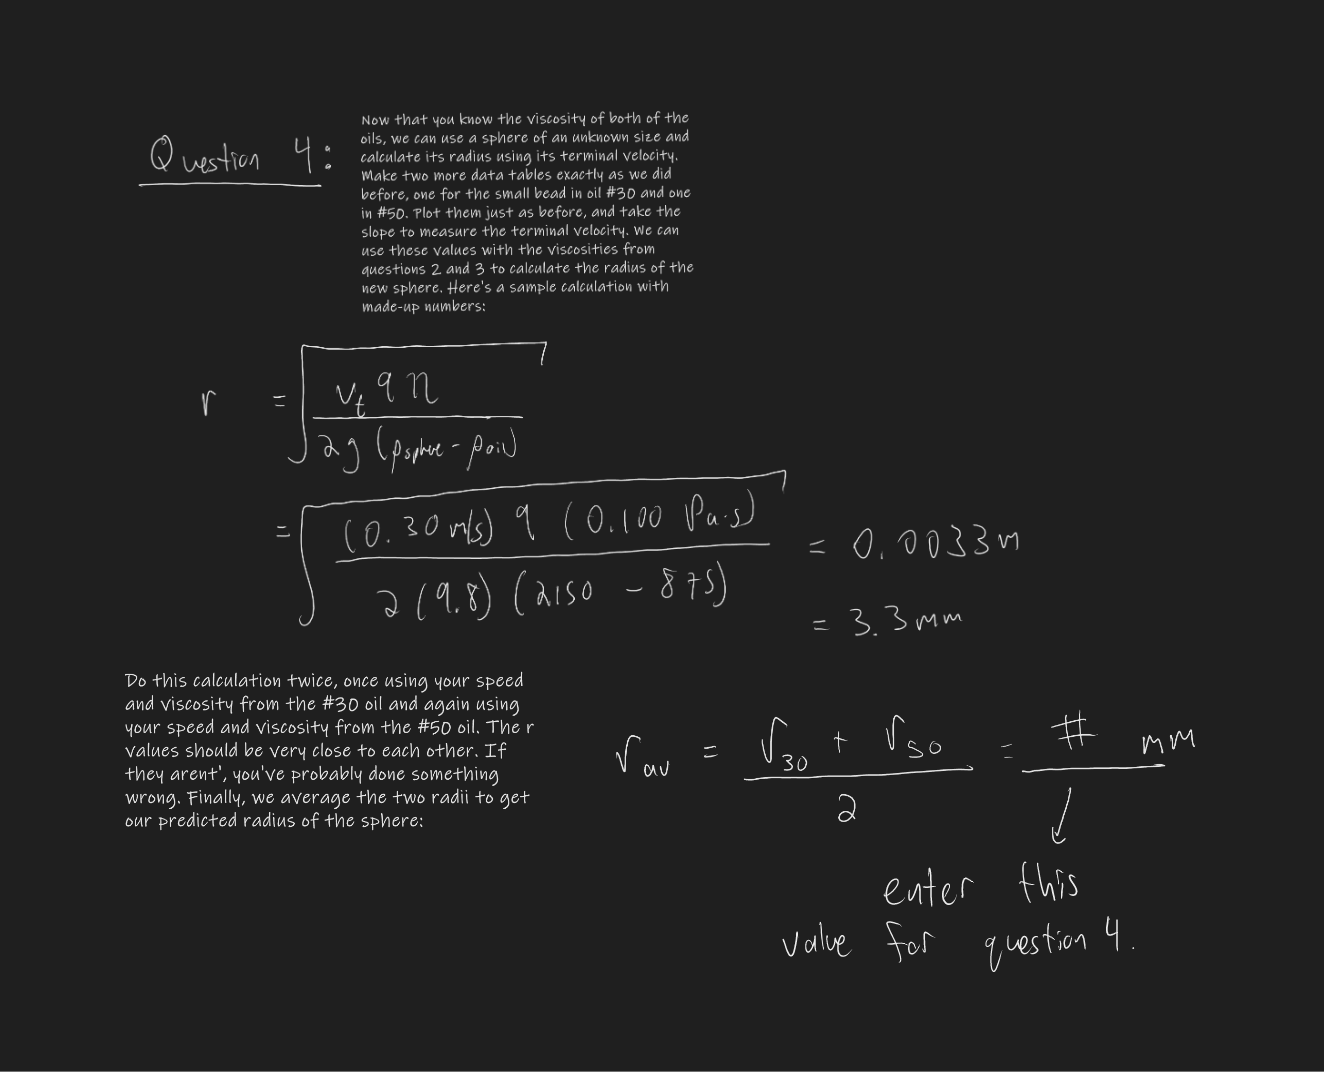 Question 4:
Now that you know the viscosity of both of the
oils, we can use a sphere of an unknown size and
calculate its radius using its terminal velocity.
Make two more data tables exactly as we did
before, one for the small bead in oil #30 and one
in #50. Plot them just as before, and take the
slope to measure the terminal velocity. We can
use these values with the viscosities from
questions 2 and 3 to calculate the radius of the
new sphere. Here's a sample calculation with
made-up numbers:
r = √
v_t 9 η
2g (ρsphere - ρoil)
= √
(0.30 m/s) 9 (0.100 Pa·s)
2 (9.8) (2150 - 875)
= 0.0033m
= 3.3mm
Do this calculation twice, once using your speed
and viscosity from the #30 oil and again using
your speed and viscosity from the #50 oil. The r
values should be very close to each other. If
they arent', you've probably done something
wrong. Finally, we average the two radii to get
our predicted radius of the sphere:
r_av = r_30 + r_50 = # mm
2
enter this
value for question 4.